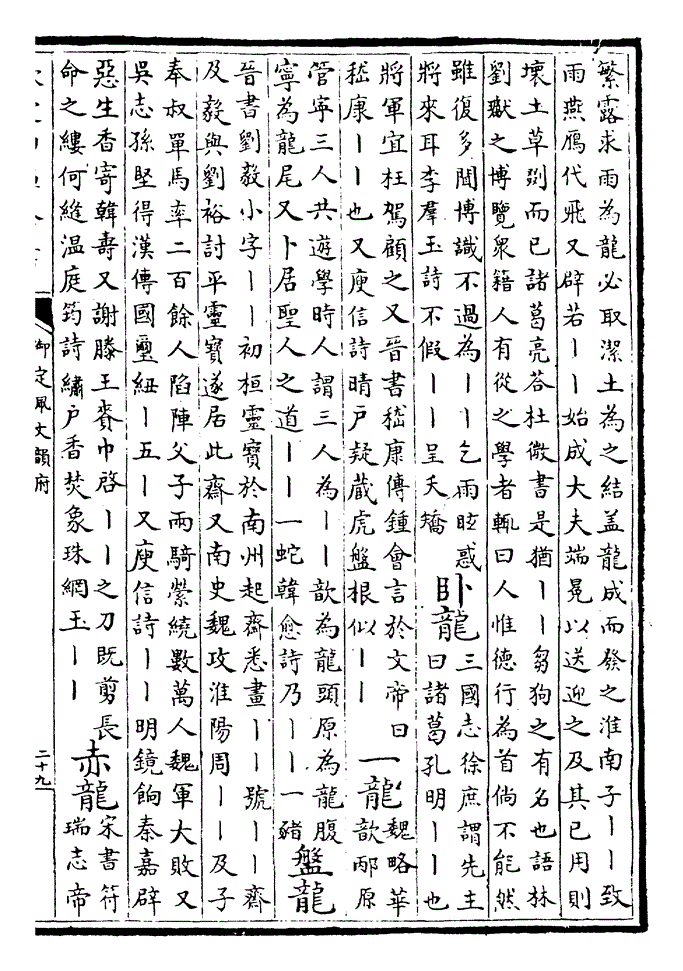 繁露求雨為龍必取潔土為之結盖龍成而發之淮南子丨丨致
雨燕鴈代飛又辟若丨丨始成大夫端冕以送迎之及其已用則
壞土草剟而已諸葛亮荅杜微書是猶丨丨芻狗之有名也語林
劉嶽之博覽衆籍人有從之學者輒曰人惟德行為首倘不能然
雖復多聞博識不過為丨丨乞雨眩惑
將來耳李羣玉詩不假丨丨呈夭矯
卧龍
三國志徐庶謂先主
曰諸葛孔明丨丨也
將軍宜枉駕顧之又晉書嵇康傳鍾會言於文帝曰
嵇康丨丨也又庾信詩晴戶疑藏虎盤根似丨丨
一龍
魏略華
歆邴原
管寧三人共遊學時人謂三人為丨丨歆為龍頭原為龍腹
寧為龍尾又卜居聖人之道丨丨一蛇韓愈詩乃丨丨一豬
盤龍
晉書劉毅小字丨丨初桓靈寶於南州起齋悉畫丨丨號丨丨齋
及毅與劉裕討平靈寶遂居此齋又南史魏攻淮陽周丨丨及子
奉叔單馬率二百餘人陷陣父子兩騎縈繞數萬人魏軍大敗又
吳志孫堅得漢傳國璽紐丨五丨又庾信詩丨丨明鏡餉秦嘉辟
惡生香寄韓壽又謝滕王賚巾啓丨丨之刀既剪長
命之縷何縫溫庭筠詩繡戶香焚象珠網玉丨丨
赤龍
宋書符
瑞志帝
御定佩文韻府
二十九